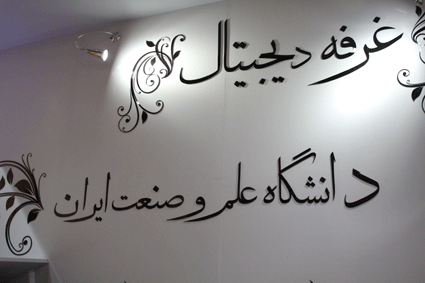 غرفه دیجیتال
دانشگاه علم و صنعت ایران